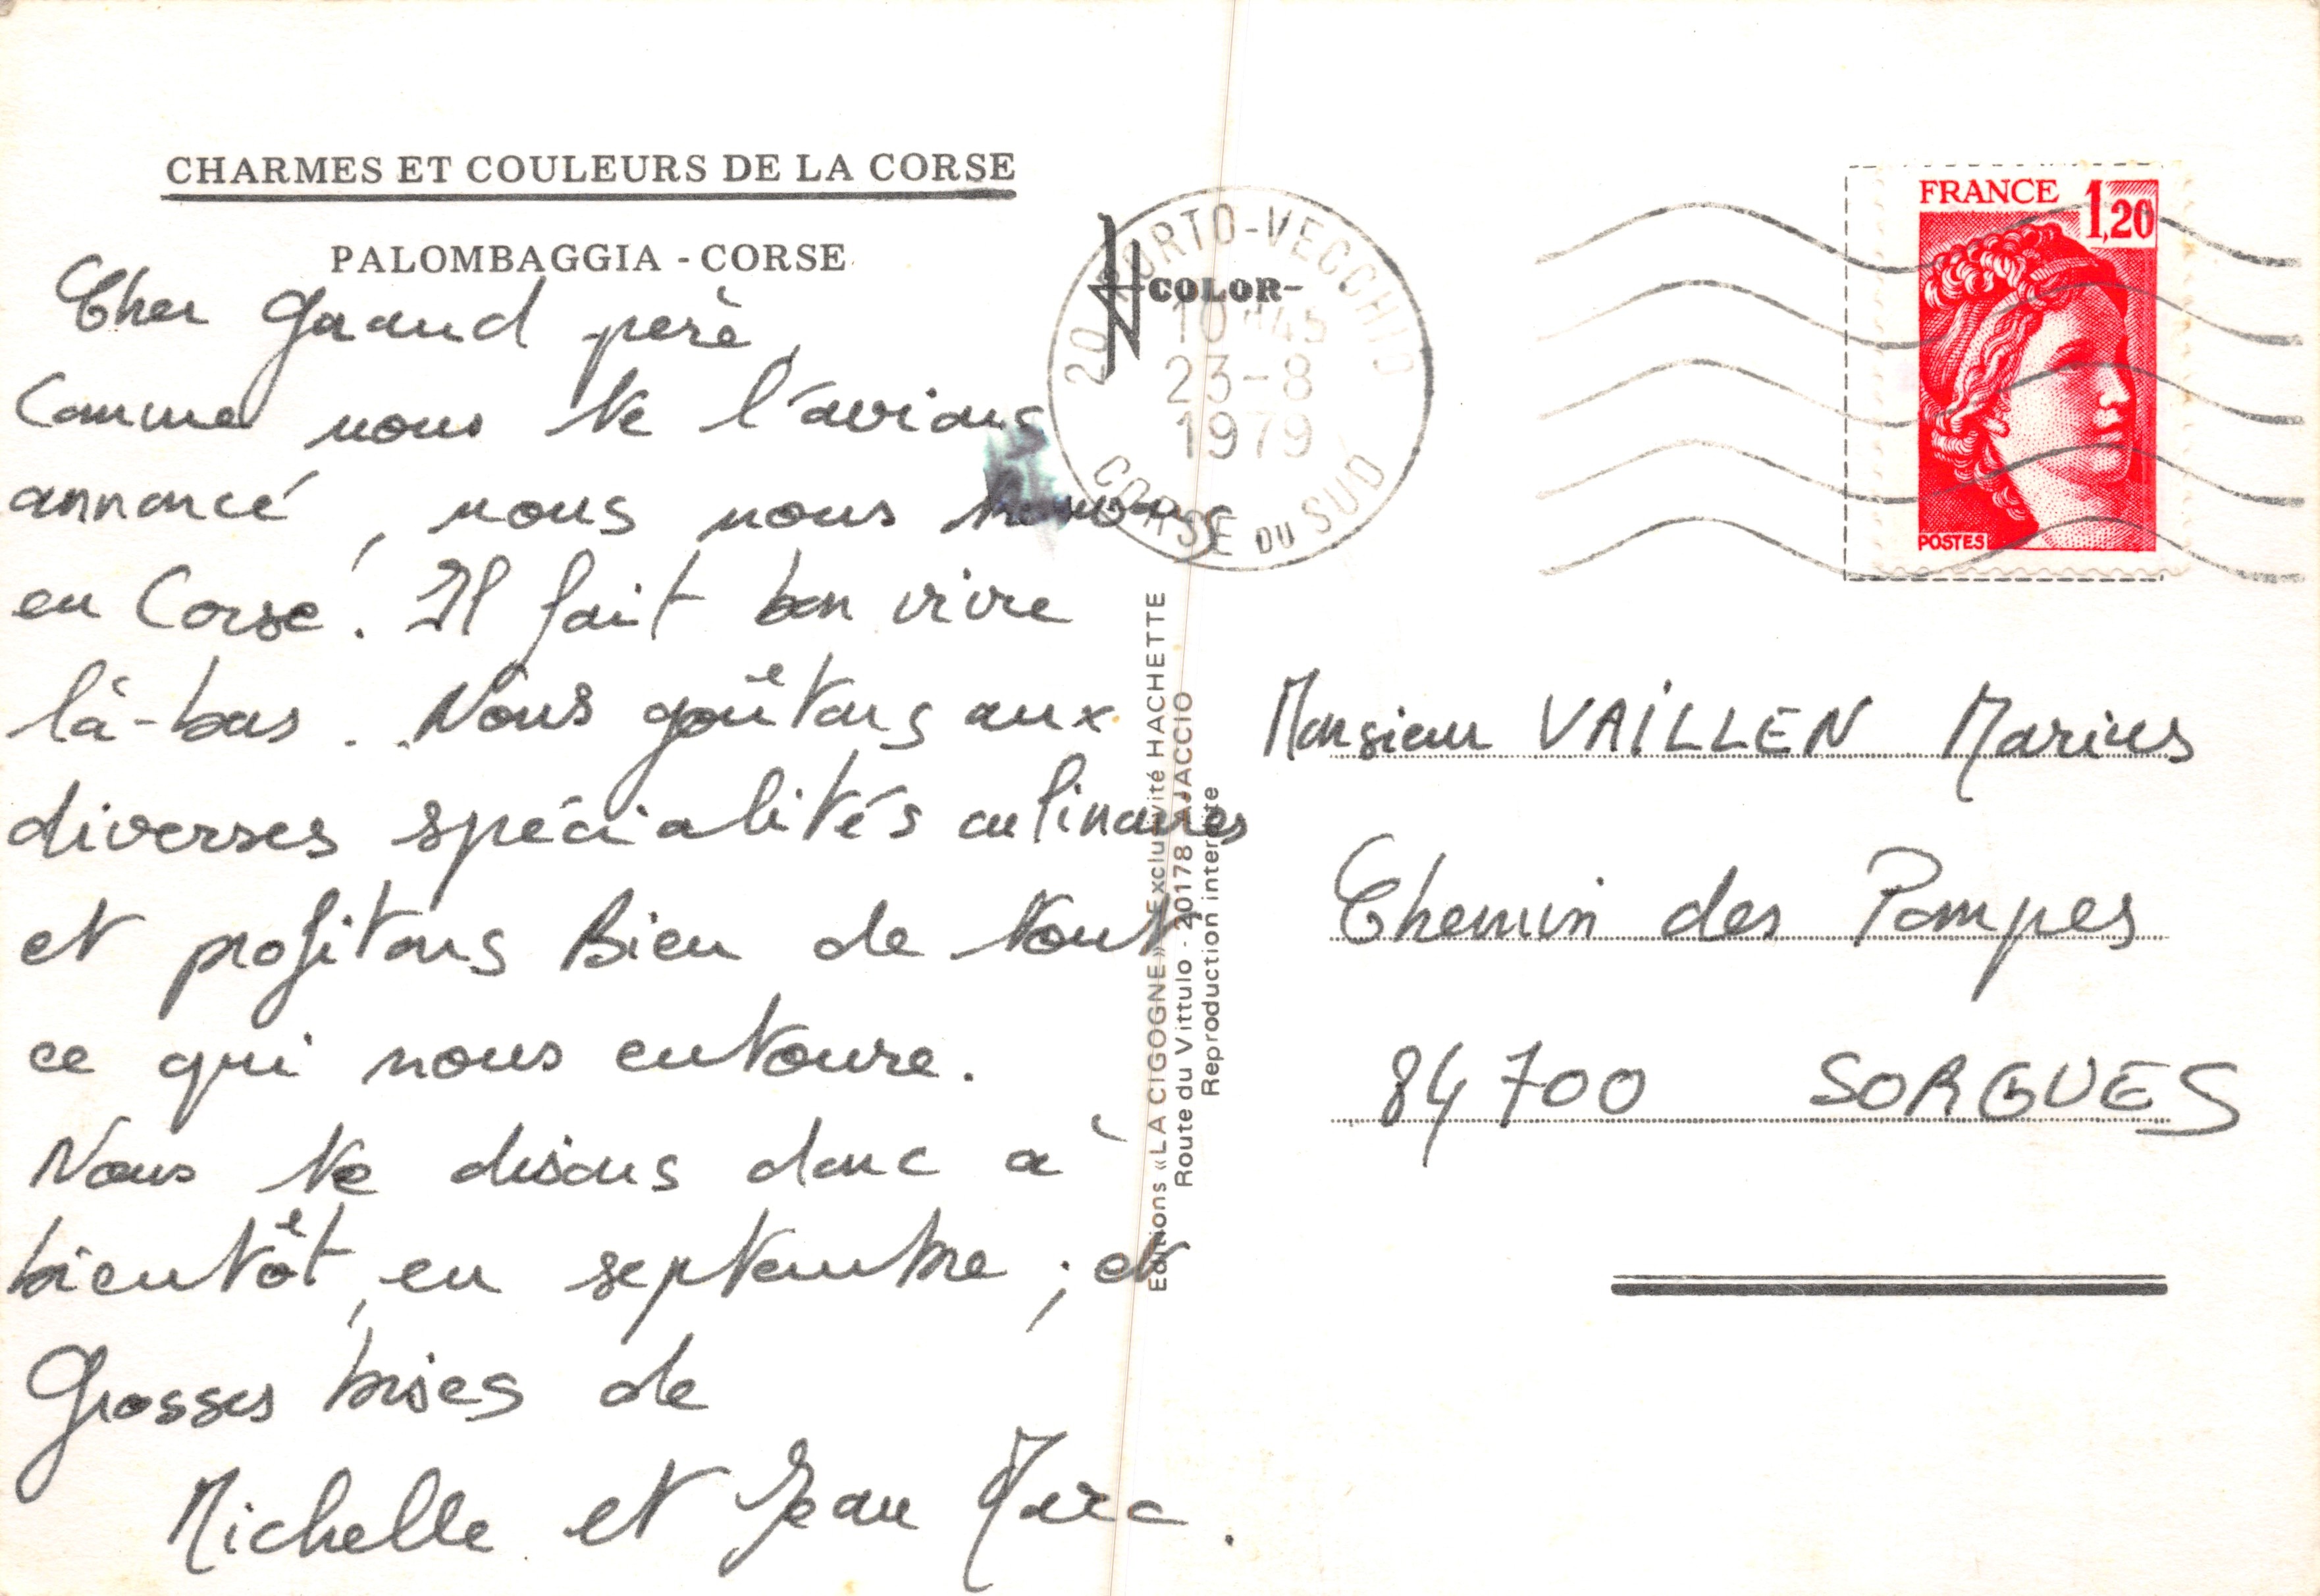 CHARMES ET COULEURS DE LA CORSE
PALOMBAGGIA - CORSE
Cher Grand perè,
Comme nous te l'avions
annoncé, nous nous
en Corse. Il fait bon vivre
là-bas.. Nous goûtons aux
diverses spécialités culinaires
et profitons Bien de tout
ce qui nous entoure.
Nous te disons donc à
bientôt, en septembre ; et
Grosses bises de
Michelle et Jean Marc.
COLOR-
20 PORTO-VECCHIO
10H45
23-8
1979
CORSE DU SUD
Editions «LA CIGOGNE» Exclusivité HACHETTE
Route du Vittulo - 20178 AJACCIO
Reproduction interdite
FRANCE 1,20
POSTES
Monsieur VAILLEN Marius
Chemin des Pompes
84700 SORGUES